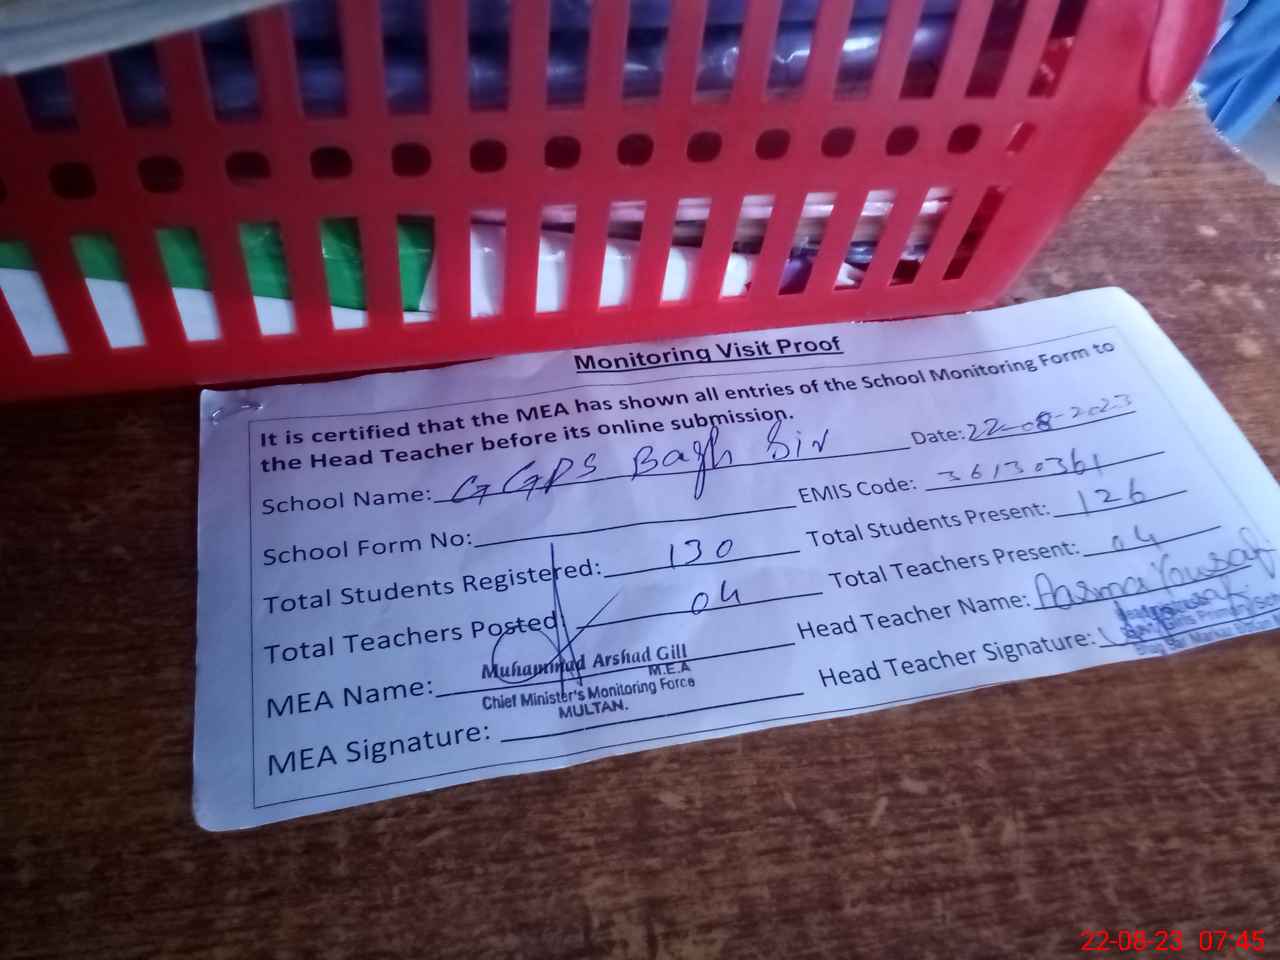 Monitoring Visit Proof
It is certified that the MEA has shown all entries of the School Monitoring Form to
the Head Teacher before its online submission.
School Name: GGPS Bagh Sir Date: 22-08-2023
School Form No: EMIS Code: 36130361
Total Students Registered: 130 Total Students Present: 126
Total Teachers Posted: 04 Total Teachers Present: 04
MEA Name: Muhammad Arshad Gill Head Teacher Name: Asma Yousaf
M.E.A
Chief Minister's Monitoring Force
MULTAN.
MEA Signature: Head Teacher Signature:
22-08-23 07:45